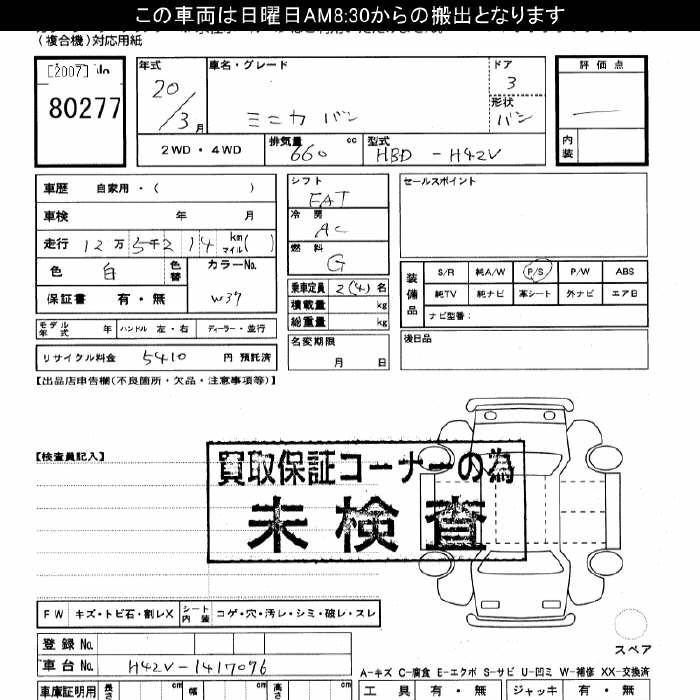 この車両は日曜日AM8:30からの搬出となります
(複合機)対応用紙
[2007] No
80277
年式
20/3月
車名・グレード
ミニカ バン
ドア
3
形状
バン
評価点
—
内装
2WD・4WD
排気量
660 cc
型式
HBD - H42V
車歴 自家用・( )
車検 年 月
走行 12万5千214 km マイル( )
色 白 色替
カラーNo.
W37
保証書 有・無
モデル年式 年 ハンドル 左・右 ディーラー・並行
リサイクル料金 5410 円 預託済
シフト
FAT
冷房
AC
燃料
G
乗車定員 2(4) 名
積載量 kg
総重量 kg
名変期限
月 日
セールスポイント
装備品
S/R 純A/W P/S P/W ABS
純TV 純ナビ 革シート 外ナビ エアB
ナビ型番:
後日品
【出品店申告欄(不良箇所・欠品・注意事項等)】
【検査員記入】
買取保証コーナーの為
未検査
FW キズ・トビ石・割レX シート内装 コゲ・穴・汚レ・シミ・破レ・スレ
スペア
登録 No.
車台 No. H42V-1417096
A-キズ C-腐食 E-エクボ S-サビ U-凹ミ W-補修 XX-交換済
車庫証明用 長さ cm 幅 cm 高さ cm
工具 有・無 ジャッキ 有・無